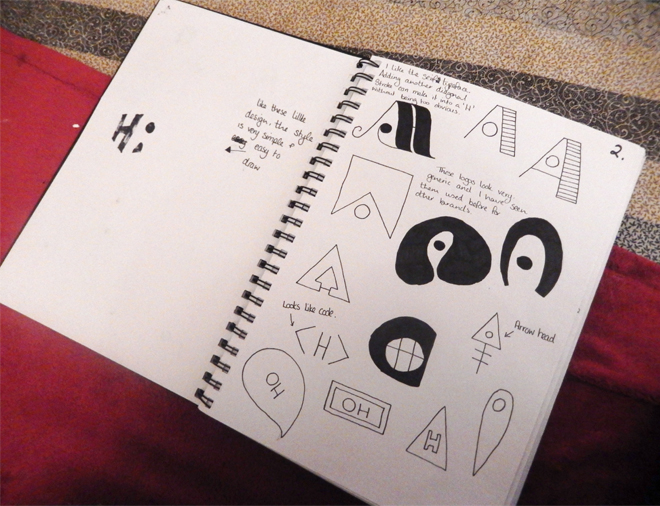 Like these little
design, the style
is very simple &
easy to
draw
I like the serif typface.
Adding another diagonal
Stroke can make it into a 'H'
without being too obvious
2.
AH
These logos look very
generic and I have seen
them used before for
other brands.
Looks like code.
<H>
Arrow head
OH
OH
H
H